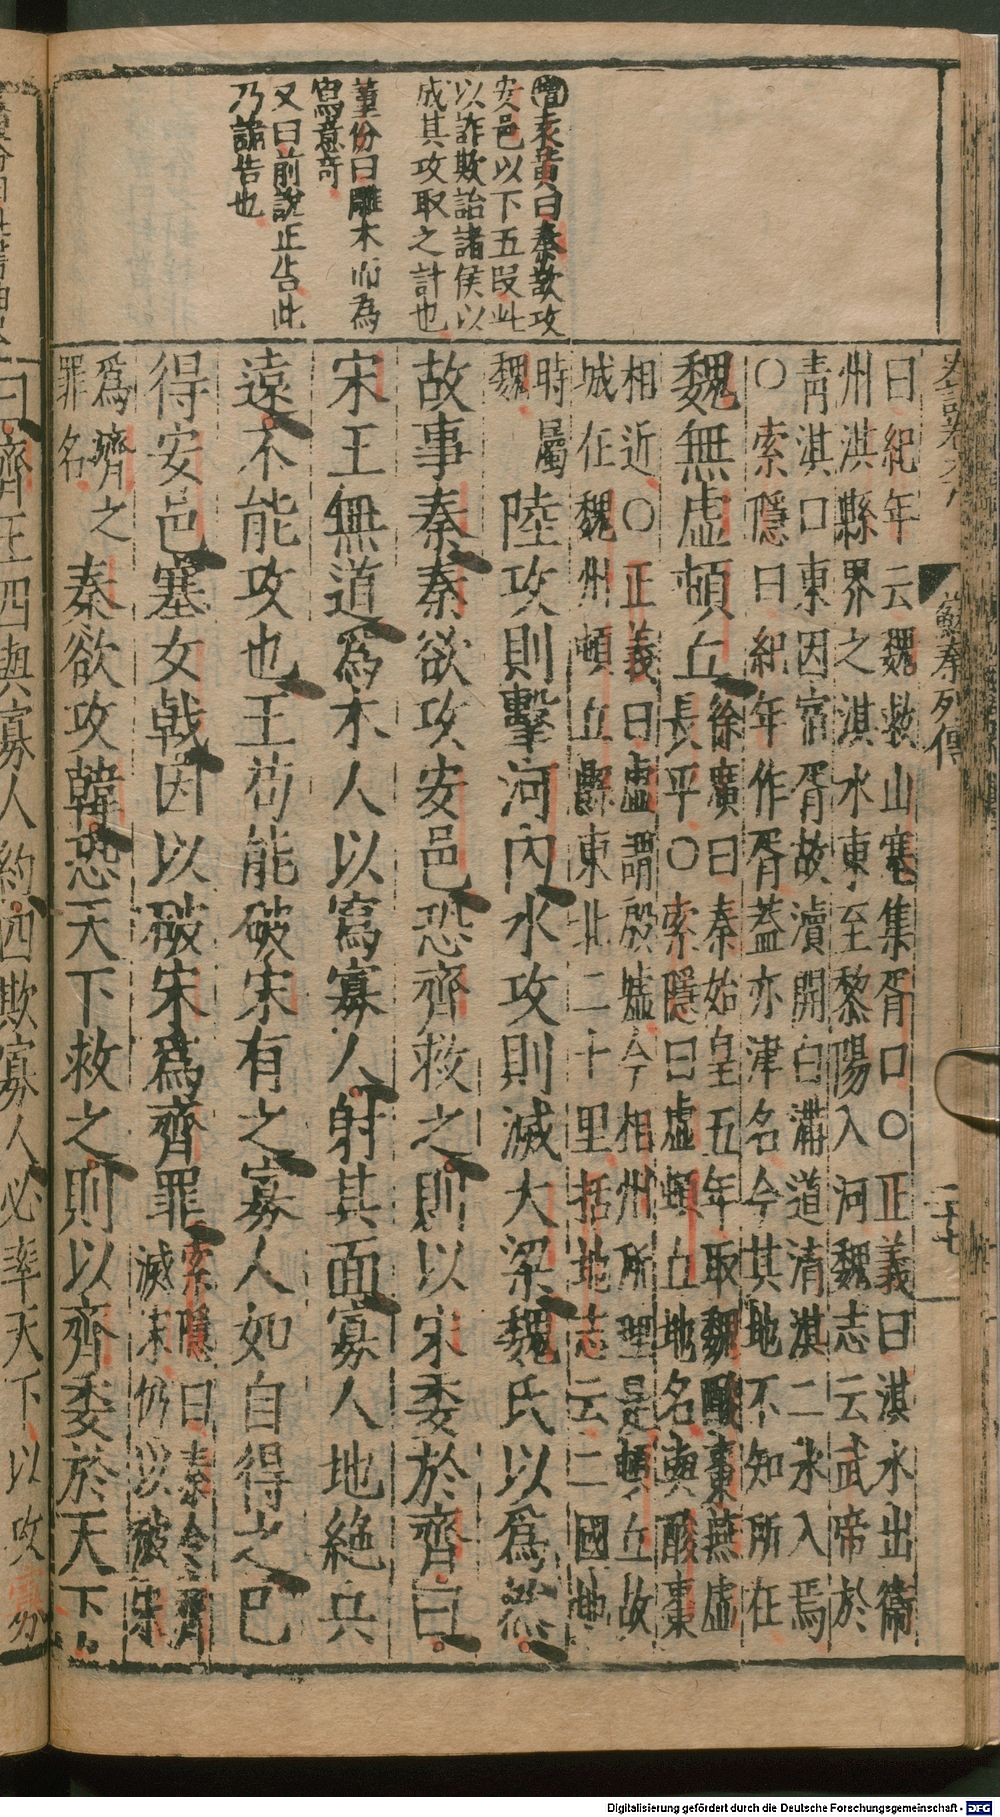 蘇秦列傳
二十七
增袁黃曰秦欲攻
安邑以下五段此
以詐欺詒諸侯以
成其攻取之計也
董份曰雕木而為
寫意奇
又曰前說正告此
乃謫告也
曰紀年云魏救山塞集胥口○正義曰淇水出衞
州淇縣界之淇水東至黎陽入河魏志云武帝於
清淇口東因宿胥故瀆開白溝道清淇二水入焉
○索隱曰紀年作胥蓋亦津名今其地不知所在
魏無虛頓丘
徐廣曰秦始皇五年取魏酸棗燕虛
長平○索隱曰虛頓丘地名與酸棗
相近○正義曰虛謂殷墟今相州所理是頓丘故
城在魏州頓丘縣東北二十里括地志云二國地
時屬
魏
陸攻則擊河內水攻則滅大梁魏氏以爲然
故事秦秦欲攻安邑恐齊救之則以宋委於齊曰
宋王無道爲木人以寫寡人射其面寡人地絕兵
遠不能攻也王苟能破宋有之寡人如自得之已
得安邑塞女戟因以破宋爲齊罪
索隱曰秦令齊
滅宋仍以破宋
爲齊之
罪名
秦欲攻韓恐天下救之則以齊委於天下
曰齊王四與寡人約四欺寡人必率天下以攻寡
Digitalisierung gefördert durch die Deutsche Forschungsgemeinschaft - DFG